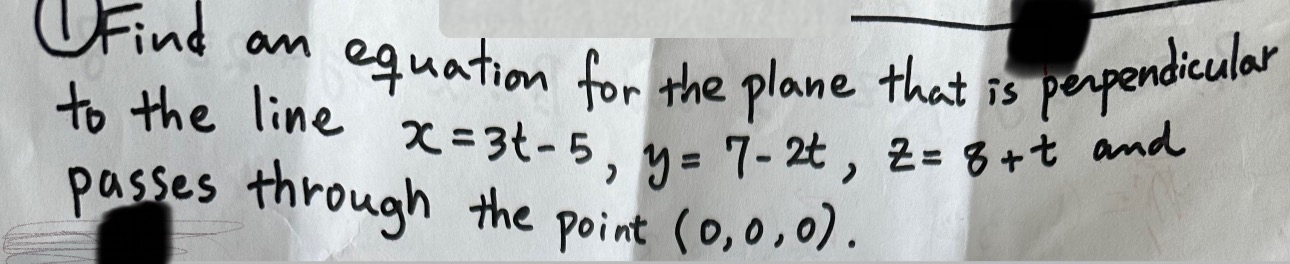 ① Find an equation for the plane that is perpendicular
to the line x = 3t - 5, y = 7 - 2t, z = 8 + t and
passes through the point (0,0,0).